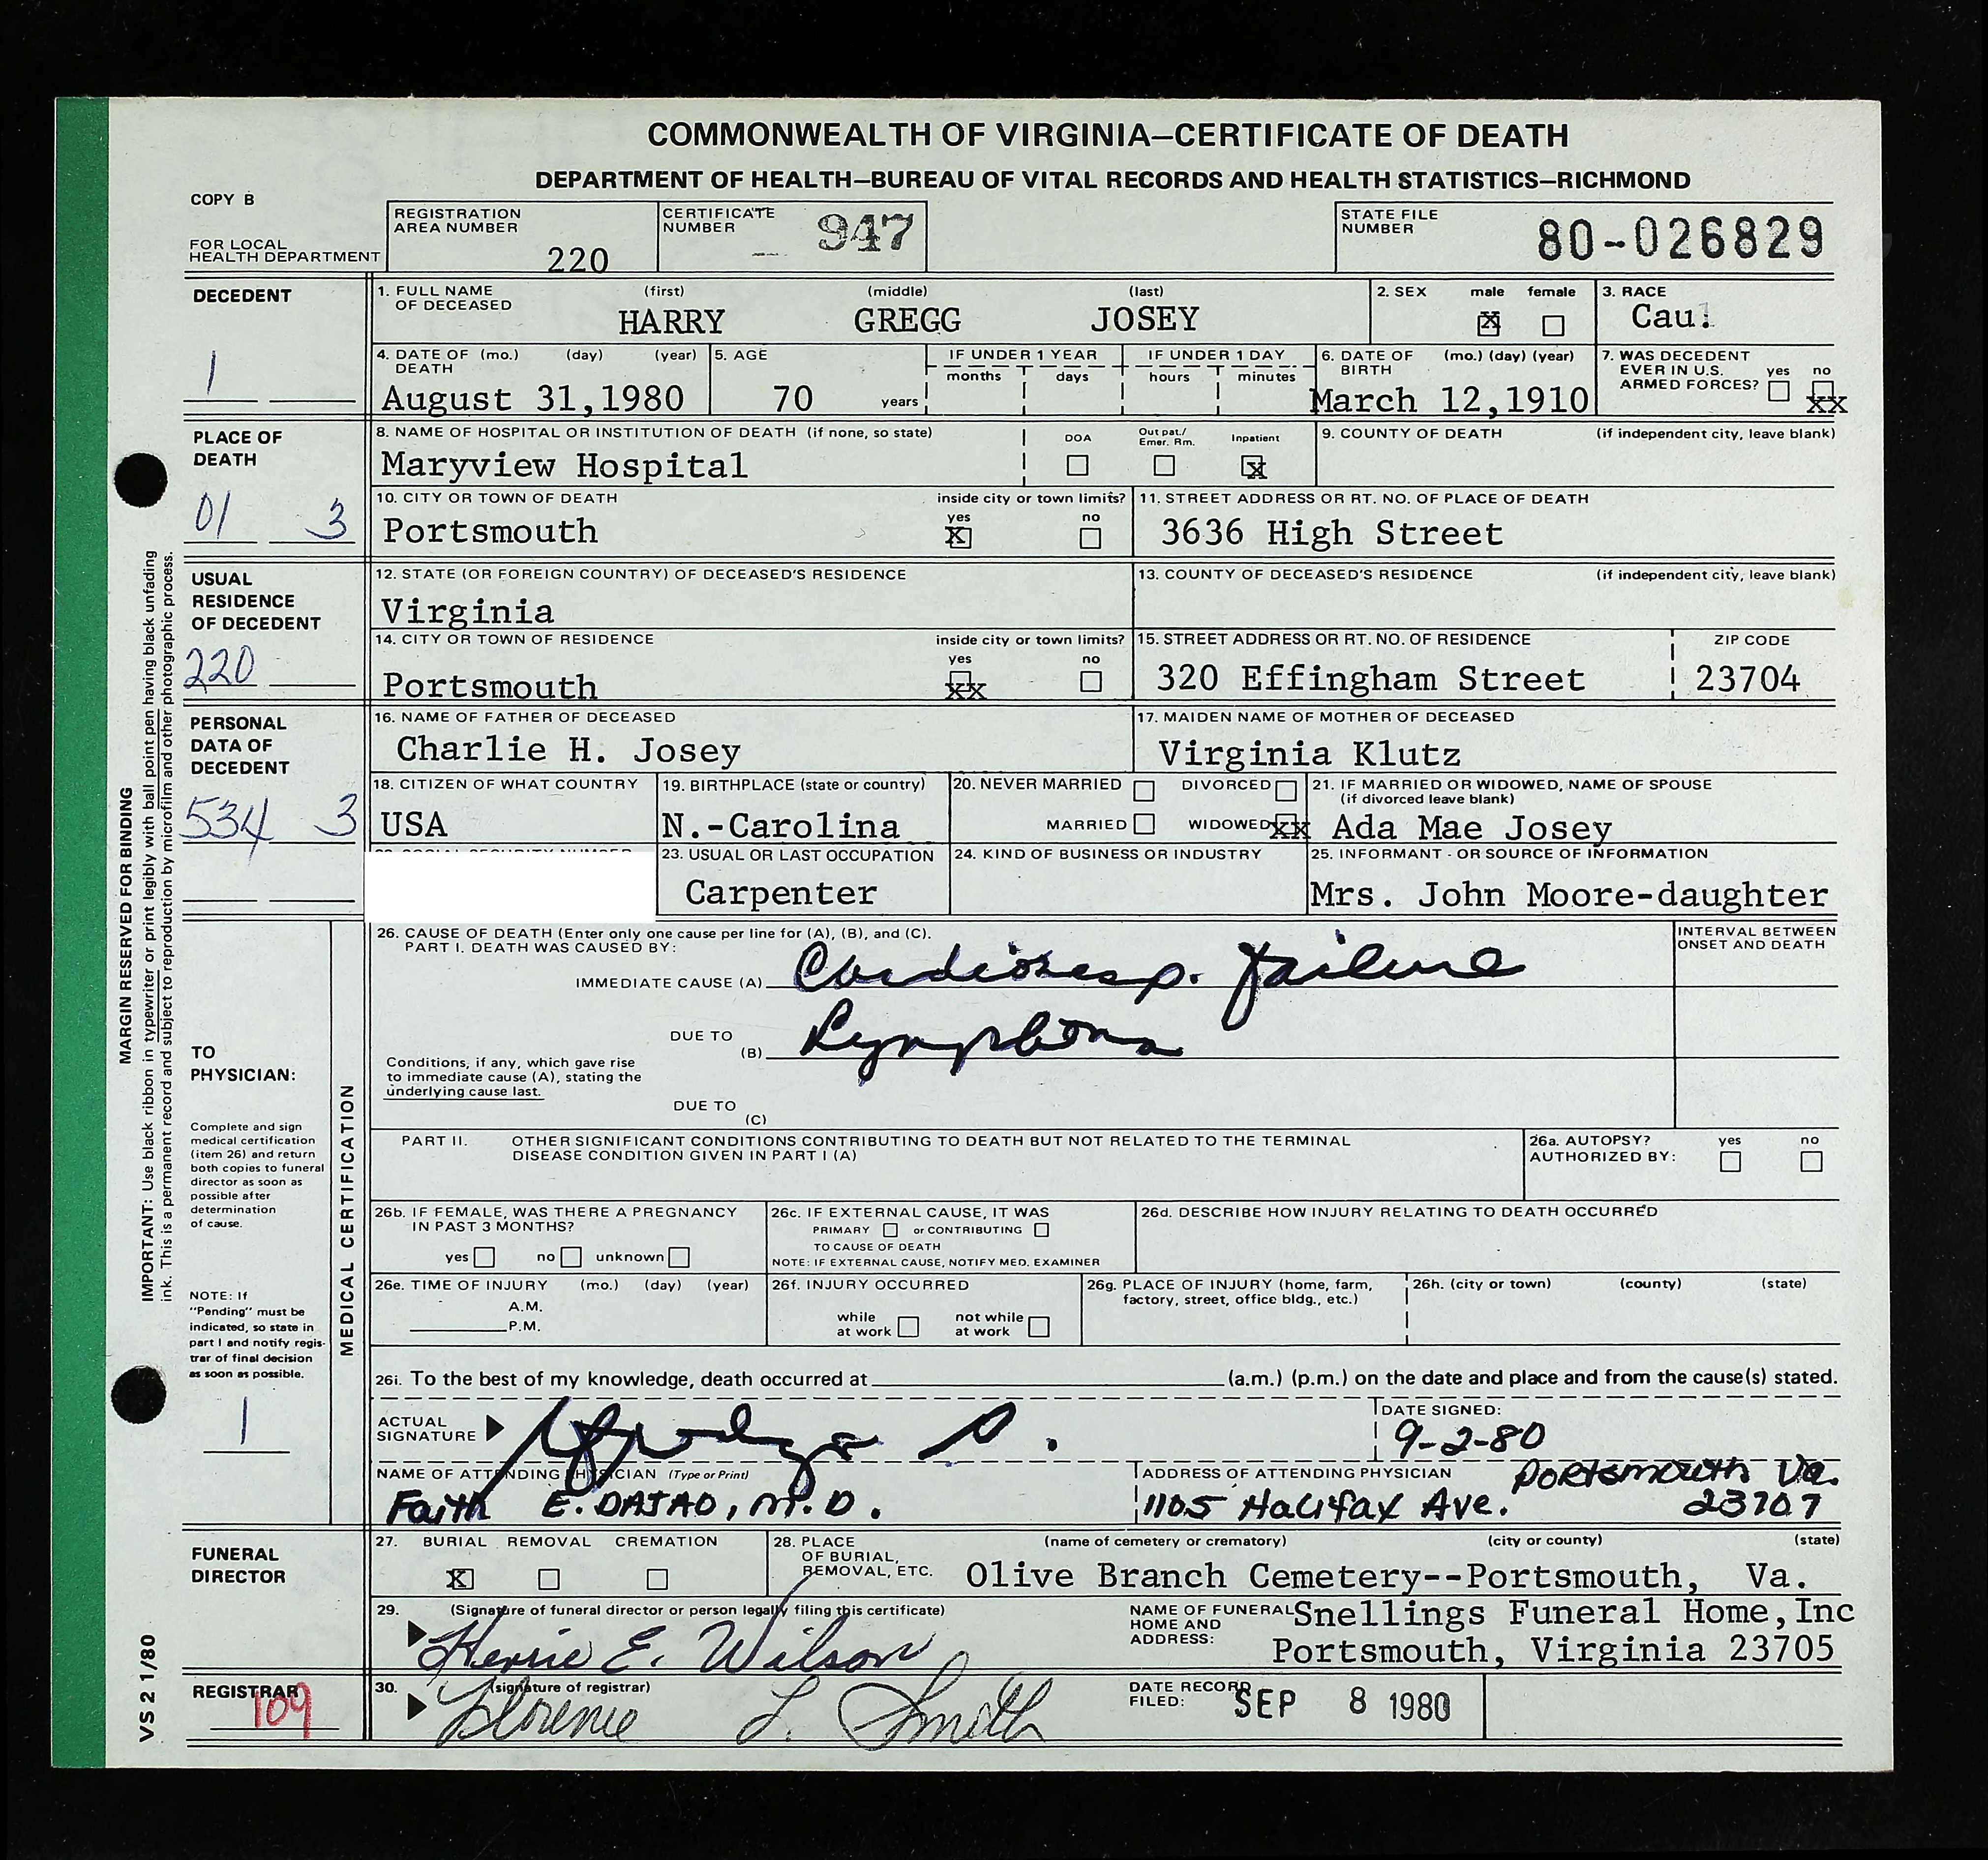 COMMONWEALTH OF VIRGINIA—CERTIFICATE OF DEATH
DEPARTMENT OF HEALTH—BUREAU OF VITAL RECORDS AND HEALTH STATISTICS—RICHMOND
COPY B
FOR LOCAL HEALTH DEPARTMENT
REGISTRATION AREA NUMBER 220
CERTIFICATE NUMBER 947
STATE FILE NUMBER 80-026829
DECEDENT
1
1. FULL NAME OF DECEASED (first) (middle) (last)
HARRY GREGG JOSEY
2. SEX male female
X
3. RACE
Cau.
4. DATE OF DEATH (mo.) (day) (year)
August 31,1980
5. AGE
70 years
IF UNDER 1 YEAR months days
IF UNDER 1 DAY hours minutes
6. DATE OF BIRTH (mo.) (day) (year)
March 12,1910
7. WAS DECEDENT EVER IN U.S. ARMED FORCES? yes no
xx
PLACE OF DEATH
01 3
8. NAME OF HOSPITAL OR INSTITUTION OF DEATH (if none, so state)
Maryview Hospital
DOA Out pat./ Emer. Rm. Inpatient
x
9. COUNTY OF DEATH (if independent city, leave blank)
10. CITY OR TOWN OF DEATH inside city or town limits? yes no
Portsmouth X
11. STREET ADDRESS OR RT. NO. OF PLACE OF DEATH
3636 High Street
USUAL RESIDENCE OF DECEDENT
220
12. STATE (OR FOREIGN COUNTRY) OF DECEASED'S RESIDENCE
Virginia
13. COUNTY OF DECEASED'S RESIDENCE (if independent city, leave blank)
14. CITY OR TOWN OF RESIDENCE inside city or town limits? yes no
Portsmouth xx
15. STREET ADDRESS OR RT. NO. OF RESIDENCE ZIP CODE
320 Effingham Street 23704
PERSONAL DATA OF DECEDENT
534 3
16. NAME OF FATHER OF DECEASED
Charlie H. Josey
17. MAIDEN NAME OF MOTHER OF DECEASED
Virginia Klutz
18. CITIZEN OF WHAT COUNTRY
USA
19. BIRTHPLACE (state or country)
N.-Carolina
20. NEVER MARRIED DIVORCED
MARRIED WIDOWED xx
21. IF MARRIED OR WIDOWED, NAME OF SPOUSE (if divorced leave blank)
Ada Mae Josey
23. USUAL OR LAST OCCUPATION
Carpenter
24. KIND OF BUSINESS OR INDUSTRY
25. INFORMANT - OR SOURCE OF INFORMATION
Mrs. John Moore-daughter
26. CAUSE OF DEATH (Enter only one cause per line for (A), (B), and (C).
PART I. DEATH WAS CAUSED BY:
INTERVAL BETWEEN ONSET AND DEATH
IMMEDIATE CAUSE (A) Cardioresp. failure
DUE TO (B) Lymphoma
Conditions, if any, which gave rise to immediate cause (A), stating the underlying cause last.
DUE TO (C)
TO PHYSICIAN:
Complete and sign medical certification (item 26) and return both copies to funeral director as soon as possible after determination of cause.
NOTE: If "Pending" must be indicated, so state in part I and notify registrar of final decision as soon as possible.
1
MEDICAL CERTIFICATION
PART II. OTHER SIGNIFICANT CONDITIONS CONTRIBUTING TO DEATH BUT NOT RELATED TO THE TERMINAL DISEASE CONDITION GIVEN IN PART I (A)
26a. AUTOPSY? yes no
AUTHORIZED BY:
26b. IF FEMALE, WAS THERE A PREGNANCY IN PAST 3 MONTHS?
yes no unknown
26c. IF EXTERNAL CAUSE, IT WAS
PRIMARY or CONTRIBUTING
TO CAUSE OF DEATH
NOTE: IF EXTERNAL CAUSE, NOTIFY MED. EXAMINER
26d. DESCRIBE HOW INJURY RELATING TO DEATH OCCURRED
26e. TIME OF INJURY (mo.) (day) (year)
A.M.
P.M.
26f. INJURY OCCURRED
while at work not while at work
26g. PLACE OF INJURY (home, farm, factory, street, office bldg., etc.)
26h. (city or town) (county) (state)
26i. To the best of my knowledge, death occurred at (a.m.) (p.m.) on the date and place and from the cause(s) stated.
ACTUAL SIGNATURE
DATE SIGNED:
9-2-80
NAME OF ATTENDING PHYSICIAN (Type or Print)
Faith E. DAJAO, M.D.
ADDRESS OF ATTENDING PHYSICIAN
1105 Halifax Ave. Portsmouth Va. 23707
FUNERAL DIRECTOR
27. BURIAL REMOVAL CREMATION
X
28. PLACE OF BURIAL, REMOVAL, ETC. (name of cemetery or crematory) (city or county) (state)
Olive Branch Cemetery--Portsmouth, Va.
29. (Signature of funeral director or person legally filing this certificate)
E. Wilson
NAME OF FUNERAL HOME AND ADDRESS:
Snellings Funeral Home,Inc
Portsmouth, Virginia 23705
REGISTRAR
109
30. (signature of registrar)
Florence L. Smith
DATE RECORD FILED: SEP 8 1980
VS 2 1/80
MARGIN RESERVED FOR BINDING
IMPORTANT: Use black ribbon in typewriter or print legibly with ball point pen having black unfading
ink. This is a permanent record and subject to reproduction by microfilm and other photographic process.